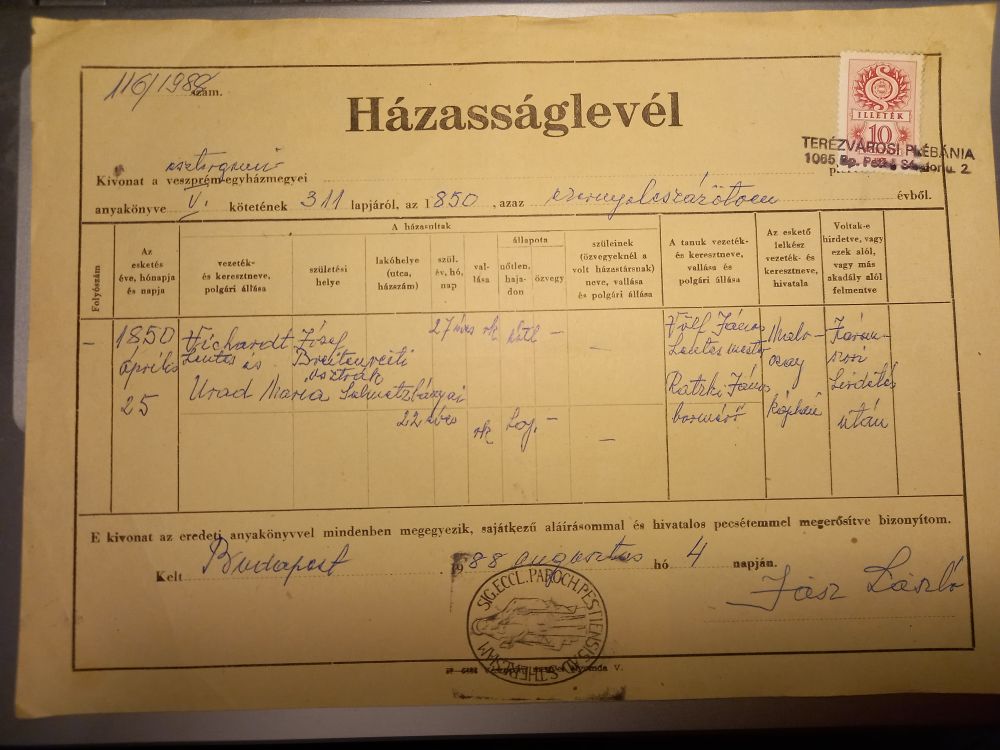 116/1988 szám.
ILLETÉK
10
Házasságlevél
TERÉZVÁROSI PLÉBÁNIA
1065 Bp. Pethő Sándor u. 2.
esztergomi
Kivonat a veszprém egyházmegyei
anyakönyve V. kötetének 311 lapjáról, az 1850, azaz évből.
Folyószám
Az esketés éve, hónapja és napja
A házasultak
vezeték- és keresztneve, polgári állása
születési helye
lakóhelye (utca, házszám)
szül. év, hó, nap
vallása
állapota
nőtlen, hajadon
özvegy
szüleinek (özvegyeknél a volt házastársnak) neve, vallása és polgári állása
A tanuk vezeték- és keresztneve, vallása és polgári állása
Az eskető lelkész vezeték- és keresztneve, hivatala
Voltak-e hirdetve, vagy ezek alól, vagy más akadály alól felmentve
– 1850 Vichardt József 27 éves rk nőtl – – Volf János
április és osztrák
25 Urad Maria Selmetzbányai Ratzki János káplán
22 éves rk haj. – – bormérő után
E kivonat az eredeti anyakönyvvel mindenben megegyezik, sajátkezű aláírásommal és hivatalos pecsétemmel megerősítve bizonyítom.
Kelt Budapest 1988 augusztus hó 4 napján.
Jász László
SIG. ECCL. PAROCH. PESTIENSIS AD S. THERESIAM